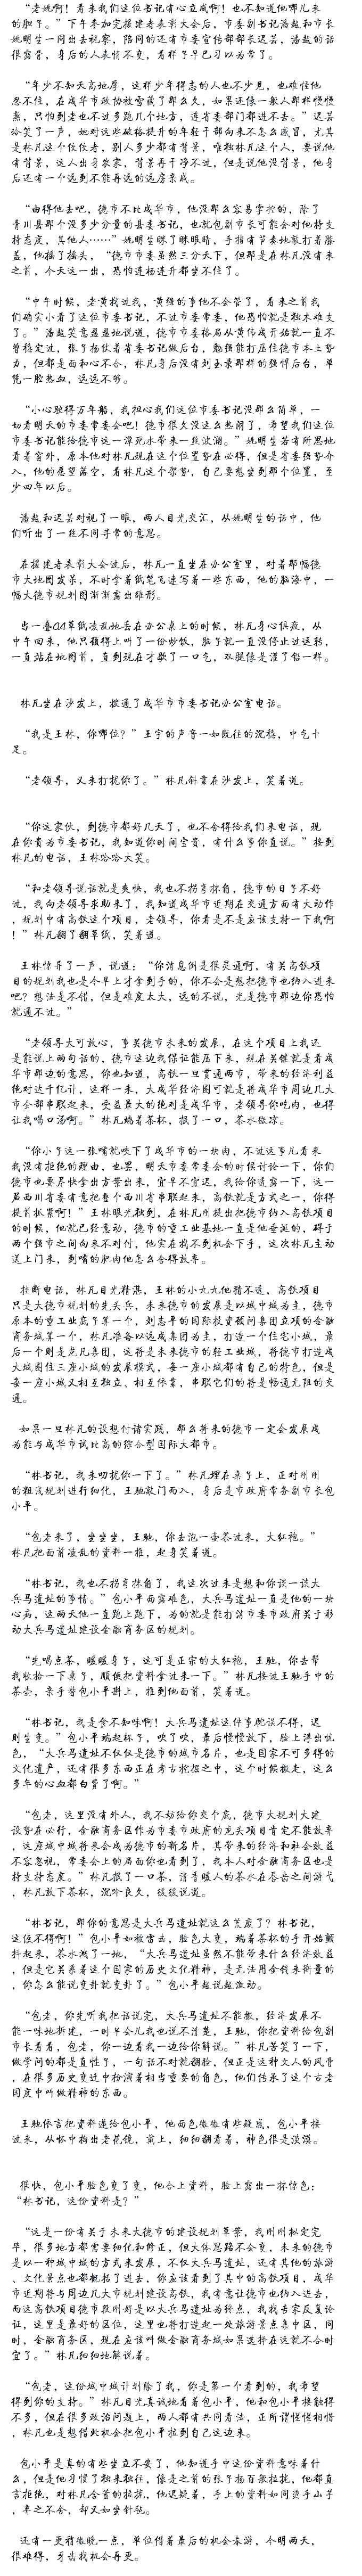 “老姚啊！看来我们这位书记有心立威啊！也不知道他哪儿来
的胆。”下午参加完援建者表彰大会后，市委副书记潘越和市长
姚明生一同出去视察，陪同的还有市委宣传部部长迟芸，潘越的话
很露骨，身后的人表情不变，看样子早已习以为常了。
“年少不知天高地厚，这样少年得志的人也不少见，也难怪他
忍不住，在成华市政协被雪藏了那么久，如果还像一般人那样慢慢
熬，只怕到老也不过多跑几个地方，连省委部门都进不去。”迟芸
冷笑了一声，她对这些破格提升的年轻干部向来不怎么感冒，尤其
是林凡这个佼佼者，别人多少都有背景，唯独林凡这个人，要说他
有背景，这人出身农家，背景再干净不过，但是说他没背景，他身
后还有一个远到不能再远的远房亲戚。
“由得他去吧，德市不比成华市，他没那么容易掌控的，除了
青川县那个没多少分量的县委书记，也就包副市长可能会对他持支
持态度，其他人……”姚明生眯了眯眼睛，手指有节奏地敲打着膝
盖，他摇了摇头，“德市市委虽然三分天下，但那是在林凡没有来
之前，今天这一出，恐怕连杨连升都坐不住了。”
“中午时候，老黄找过我，黄强的事他不会管了，看来之前我
们确实小看了这位市委书记，不过市委常委，他恐怕就是独木难支
了。”潘越笑意盈盈地说道，德市市委格局从黄伟成开始就一直不
曾稳定过，张子杨仗着省委书记做后台，勉强能打压住德市本土势
力，但都是面和心不合，林凡身后没有刘玉录那样的强悍后台，单
凭一腔热血，远远不够。
“小心驶得万年船，我担心我们这位市委书记没那么简单，一
切看明天的市委常委会吧！德市很久没这么热闹了，希望我们这位
市委书记能给德市这一潭死水带来一丝波澜。”姚明生若有所思地
看着窗外，原本他对林凡现在这个位置势在必得，但是省委强势介
入，他的愿望落空，看林凡这个架势，自己要想坐到那个位置，至
少四年以后。
潘越和迟芸对视了一眼，两人目光交汇，从姚明生的话中，他
们听出了一丝不同寻常的意思。
在援建者表彰大会过后，林凡一直坐在办公室里，对着那幅德
市大地图发呆，不时拿着纸笔飞速写着一些东西，他的脑海中，一
幅大德市规划图渐渐露出雏形。
当一叠A4草纸凌乱地丢在办公桌上的时候，林凡身心俱疲，从
中午回来，他只顾得上叫了一份炒饭，脑子就一直没停止过运转，
一直站在地图前，直到现在才歇了一口气，双腿像是灌了铅一样。
林凡坐在沙发上，拨通了成华市市委书记办公室电话。
“我是王林，你哪位？”王宇的声音一如既往的沉稳，中气十
足。
“老领导，又来打扰你了。”林凡斜靠在沙发上，笑着道。
“你这家伙，到德市都好几天了，也不舍得给我们来电话，现
在你贵为市委书记，我知道你时间宝贵，有什么事你直说。”接到
林凡的电话，王林哈哈大笑。
“和老领导说话就是爽快，我也不拐弯抹角，德市的日子不好
过，我向老领导求助来了，我知道成华市近期在交通方面有大动作
，规划中有高铁这个项目，老领导，你看是不是应该支持一下我啊
！”林凡翻了翻草纸，笑着道。
王林惊寻了一声，说道：“你消息倒是很灵通啊，有关高铁项
目的规划我也是今早上才拿到手的，你不会是想把德市也纳入进来
吧？想法是不错，但是难度太大，远的不说，光是德市那边你恐怕
就通不过。”
“老领导大可放心，事关德市未来的发展，在这个项目上我还
是能说上两句话的，德市这边我保证能压下来，现在关键就是看成
华市那边的意思，你也知道，高铁一旦贯通两市，带来的经济利益
绝对达千亿计，这样一来，大成华经济圈可就是将成华市周边几大
市全部串联起来，受益最大的绝对是成华市，老领导你吃肉，也得
让我喝口汤啊。”林凡端着茶杯，抿了一口，茶水微凉。
“你小子这一张嘴就咬下了成华市的一块肉，不过这事儿看来
我没有拒绝的理由，也罢，明天市委常委会的时候讨论一下，你们
德市也要尽快拿出方案出来，宜早不宜迟，我给你透露一下，这一
届西川省委有意把整个西川省串联起来，高铁就是方式之一，你得
提前抓紧啊！”王林眼光独到，在林凡刚提出把德市纳入高铁项目
的时候，他就已经意动，德市的重工业基地一直是他垂涎的，碍于
两个强市之间向来不对付，他实在找不到机会下手，这次林凡主动
送上门来，到嘴的肥肉他怎么舍得放弃。
挂断电话，林凡目光精湛，王林的小九九他猜不透，高铁项目
只是大德市规划的先头兵，未来德市的发展是以城中城为主，德市
原本的重工业底子算一个，刘志平的国际投资顾问集团立项的金融
商务城算一个，林凡准备以远成集团为主，打造一个住宅小城，最
后一个则是龙瓦集团，这将是未来德市的轻工业城，将德市打造成
大城围住三座小城的发展模式，每一座小城都有自己的特色，但是
每一座小城又相互独立、相互依靠，串联它们的将是畅通无阻的交
通。
如果一旦林凡的设想付诸实践，那么将来的德市一定会发展成
为能与成华市试比高的综合型国际大都市。
“林书记，我来叨扰你一下了。”林凡埋在桌子上，正对刚刚
的粗浅规划进行细化，王驰敲门而入，身后是市政府常务副市长包
小平。
“包老来了，坐坐坐，王驰，你去泡一壶茶过来，大红袍。”
林凡把面前凌乱的资料一推，起身笑着道。
“林书记，我也不拐弯抹角了，我这次过来是想和你谈一谈大
兵马遗址的事情。”包小平面露难色，大兵马遗址一直是他的一块
心病，这两天他一直跑上跑下，为的就是能打消市委市政府关于移
动大兵马遗址建设金融商务区的规划。
“先喝点茶，暖暖身子，这可是正宗的大红袍，王驰，你去帮
我收拾一下桌子，顺便把资料拿过来一下。”林凡接过王驰手中的
茶壶，亲手替包小平斟上，推到他面前，笑着道。
“林书记，我是食不知味啊！大兵马遗址这件事耽误不得，迟
则生变。”包小平端起杯子，吹了吹，最后慢慢放下，脸上浮出忧
色，“大兵马遗址不仅仅是德市的城市名片，也是国家不可多得的
文化遗产，还有很多东西正在考古挖掘之中，这个时候搬走，这么
多年的心血都白费了啊。”
“包老，这里没有外人，我不妨给你交个底，德市大规划大建
设势在必行，金融商务区作为市委市政府的龙头项目肯定不能放弃
，这座城中城将来会成为德市的新名片，其带来的经济和社会效益
不容忽视，常委会上的局面你也看到了，我本人对金融商务区也是
持支持态度。”林凡抿了一口茶，清香暖人的茶水在唇齿之间游弋
，林凡放下茶杯，沉吟良久，缓缓说道。
“林书记，那你的意思是大兵马遗址就这么荒废了？林书记，
这使不得啊！”包小平如被雷击，脸色大变，端着茶杯的手开始颤
抖起来，茶水溅了一地，“大兵马遗址虽然不能带来什么经济效益
，但是它关系着这个国家的历史文化精神，是无法用金钱来衡量的
，你怎么能说变卦就变卦了。”包小平越说越激动。
“包老，你先听我把话说完，大兵马遗址不能搬，经济发展不
能一味地拆建，一时半会儿我也说不清楚，王驰，你把资料给包副
市长看看，包老，你一边看我一边给你解说。”林凡苦笑了一下，
做学问的都是直性子，一句话不对就翻脸，但正是这种文人的风骨
，在很多历史变迁中扮演着相当重要的角色，他们传承了这个古老
国度中叫做精神的东西。
王驰依言把资料递给包小平，他面色微微有些疑惑，包小平接
过来，从怀中掏出老花镜，戴上，细细翻看着，神色很是淡漠。
很快，包小平脸色变了变，他合上资料，脸上露出一抹惊色：
“林书记，这份资料是？”
“这是一份有关于未来大德市的建设规划草案，我刚刚拟定完
毕，很多地方都需要细化和修正，但大体思路不会变，未来的德市
是以一种城中城的方式来发展，不仅大兵马遗址，还有其他的旅游
、文化景点也都概括了进去，你应该看到了其中的高铁项目，成华
市近期将与周边几大市规划建设高铁，我有意让德市也纳入进去，
而这高铁项目德市段刚好是以大兵马遗址为终点，我找专家反复论
证，这里是最好的区位，这里也将打造起一处旅游景点集中区，同
时，金融商务区，现在应该叫做金融商务城如果选择在这就不合时
宜了。”林凡细细地解说着。
“包老，这份城中城计划除了我，你是第一个看到的，我希望
得到你的支持。”林凡目光真诚地看着包小平，他和包小平接触得
不多，但在很多政治问题上，两人都有共同看法，正所谓惺惺相惜
，林凡也是想借此机会把包小平拉到自己这边来。
包小平是真的有些坐立不安了，他知道手中这份资料意味着什
么，但是他习惯了独来独往，像是之前的张子扬百般拉拢，他都直
言拒绝，对林凡含着的拉拢，他迟疑着，手上的资料如同烫手山芋
，弃之不舍，却又如坐针毡。
还有一更稍微晚一点，单位借着最后的机会春游，今明两天，
很难得，牙齿找机会再更。